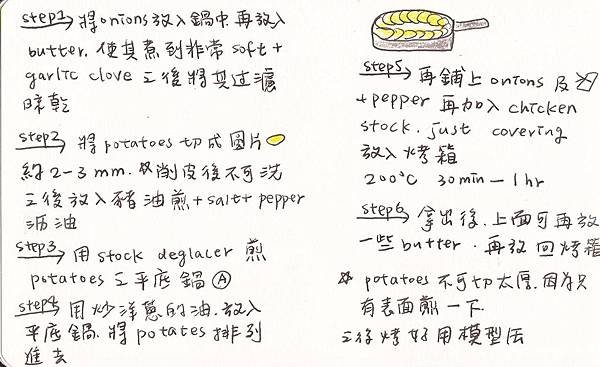 step1 將onions放入鍋中再放入
butter.使其煮到非常soft+
garlic clove 之後將其过濾
晾乾
step2 將potatoes切成圓片
約2-3mm.※削皮後不可洗
之後放入豬油煎+salt+pepper
沥油
step3 用stock deglacer 煎
potatoes之平底鍋Ⓐ
step4 用炒洋蔥的油.放入
平底鍋.將potates排列
進去
step5 再鋪上onions及
+pepper 再加入chicken
stock.just covering
放入烤箱
200℃ 30min-1hr
step6 拿出後.上面可再放
一些butter.再放回烤箱
※ potatoes不可切太厚.因為只
有表面煎一下.
之後烤好用模型压